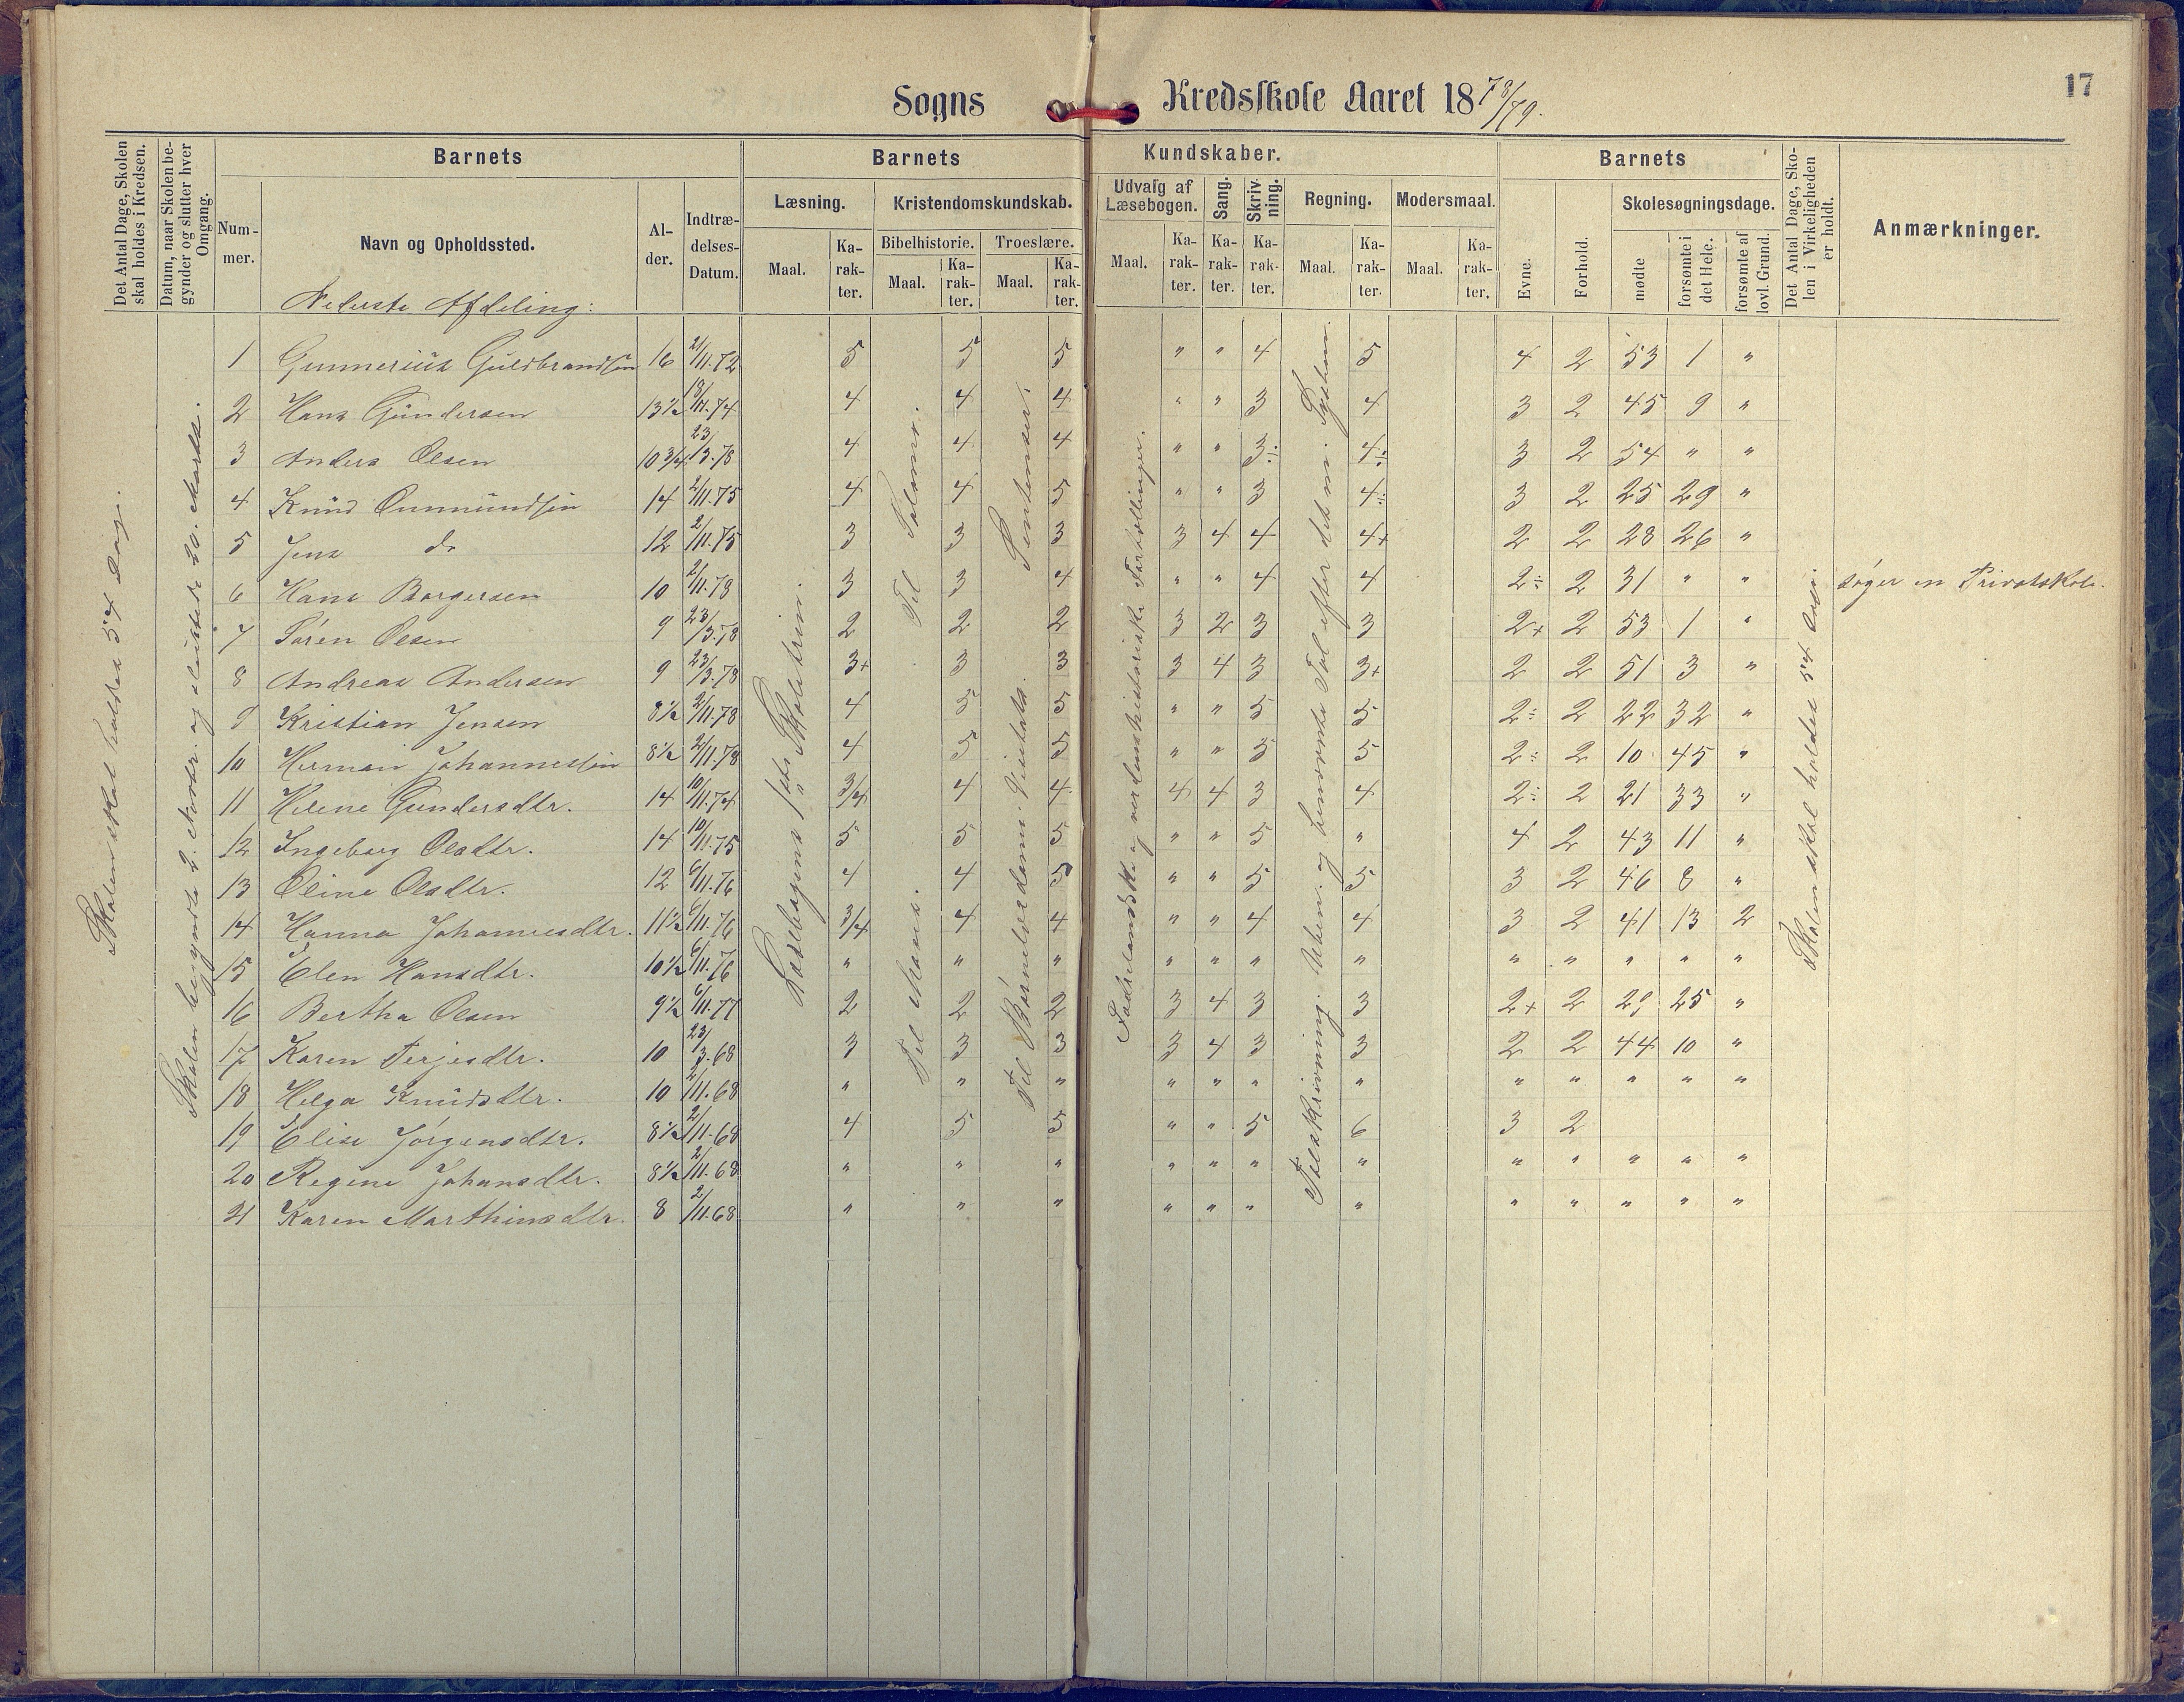 17
Sogns Kredsskole Aaret 1878/79.
Det Antal Dage, Skolen skal holdes i Kredsen.
Datum, naar Skolen begynder og slutter hver Omgang.
Barnets
Barnets Kundskaber.
Barnets
Det Antal Dage, Skolen i Virkeligheden er holdt.
Anmærkninger.
Nummer.
Navn og Opholdssted.
Alder.
Indtrædelses-Datum.
Læsning.
Kristendomskundskab.
Udvalg af Læsebogen.
Sang.
Skrivning.
Regning.
Modersmaal.
Evne.
Forhold.
Skolesøgningsdage.
Bibelhistorie.
Troeslære.
Maal. Karakter. Maal. Karakter. Maal. Karakter. Maal. Karakter. Karakter. Karakter. Maal. Karakter. Maal. Karakter.
mødte
forsømte i det Hele.
forsømte af lovl. Grund.
Nederste Afdeling:
1 Gunnerius Guldbrandsen 16 2/11.72 5 5 5 " " 4 5 4 2 53 1 "
2 Hans Gundersen 13½ 4 4 4 " " 3 4 3 2 45 9 "
3 Anders Olsen 10 3/4 23/3.78 4 4 4 " " 3÷ 4÷ 3 2 54 " "
4 Knud 14 2/11.75 4 4 5 " " 3 4÷ 3 2 25 29 "
5 Jens do 12 2/11.75 3 3 3 3 4 4 4+ 2 2 28 26 "
6 Hans Borgersen 10 2/11.78 3 3 4 " " 4 4 2÷ 2 31 " " søger en Privatskole.
7 Søren Olsen 9 23/3.78 2 2 2 3 2 3 3 2+ 2 53 1 "
8 Andreas Andersen 9 23/3.78 3+ 3 3 3 4 3 3+ 2 2 51 3 "
9 Kristian Jensen 8½ 2/11.78 4 5 5 " " 5 5 2÷ 2 22 32 "
10 Herman Johannessen 8½ 2/11.78 4 5 5 " " 5 5 2÷ 2 10 45 "
11 Helene Gundersdtr. 14 10/11.74 3/4 4 4 4 4 3 4 2÷ 2 21 33 "
12 Ingeborg Olsdtr. 14 10/11.75 5 5 5 " " 5 " 4 2 43 11 "
13 Oline Olsdtr. 12 6/11.76 4 4 5 " " 5 5 3 2 46 8 "
14 Hanna Johannesdtr. 11½ 6/11.76 3/4 4 4 " " 4 4 3 2 41 13 2
15 Elen Hansdtr. 10½ 6/11.76 " " " " " " " " " " " "
16 Bertha Olsen 9½ 6/11.77 2 2 2 3 4 3 3 2+ 2 29 25 "
17 Karen Terjesdtr. 10 23/3.68 3 3 3 3 4 3 3 2 2 44 10 "
18 Helga Knudsdtr. 10 2/11.68 " " " " " " " " " " " "
19 Elise Jørgensdtr. 8½ 2/11.68 4 5 5 " " 5 6 3 2
20 Regine Johansdtr. 8½ 2/11.68 " " " " " " " " " " " "
21 Karen Marthinsdtr. 8 2/11.68 " " " " " " " " " " " "
Skolen skal holdes 54 Dage.
Skolen begyndte 2. Novbr. og sluttede 20. Marts.
Læsebogens 1ste Skoletrin.
Til Moses. Til Salomo.
Til Børnelærdommens Sentenser.
Fædrelandske og verdenshistoriske Fortællinger.
Talskrivning. Uben. og benævnte Tal efter det ny System.
Skolen skal holdes 54 Dage.